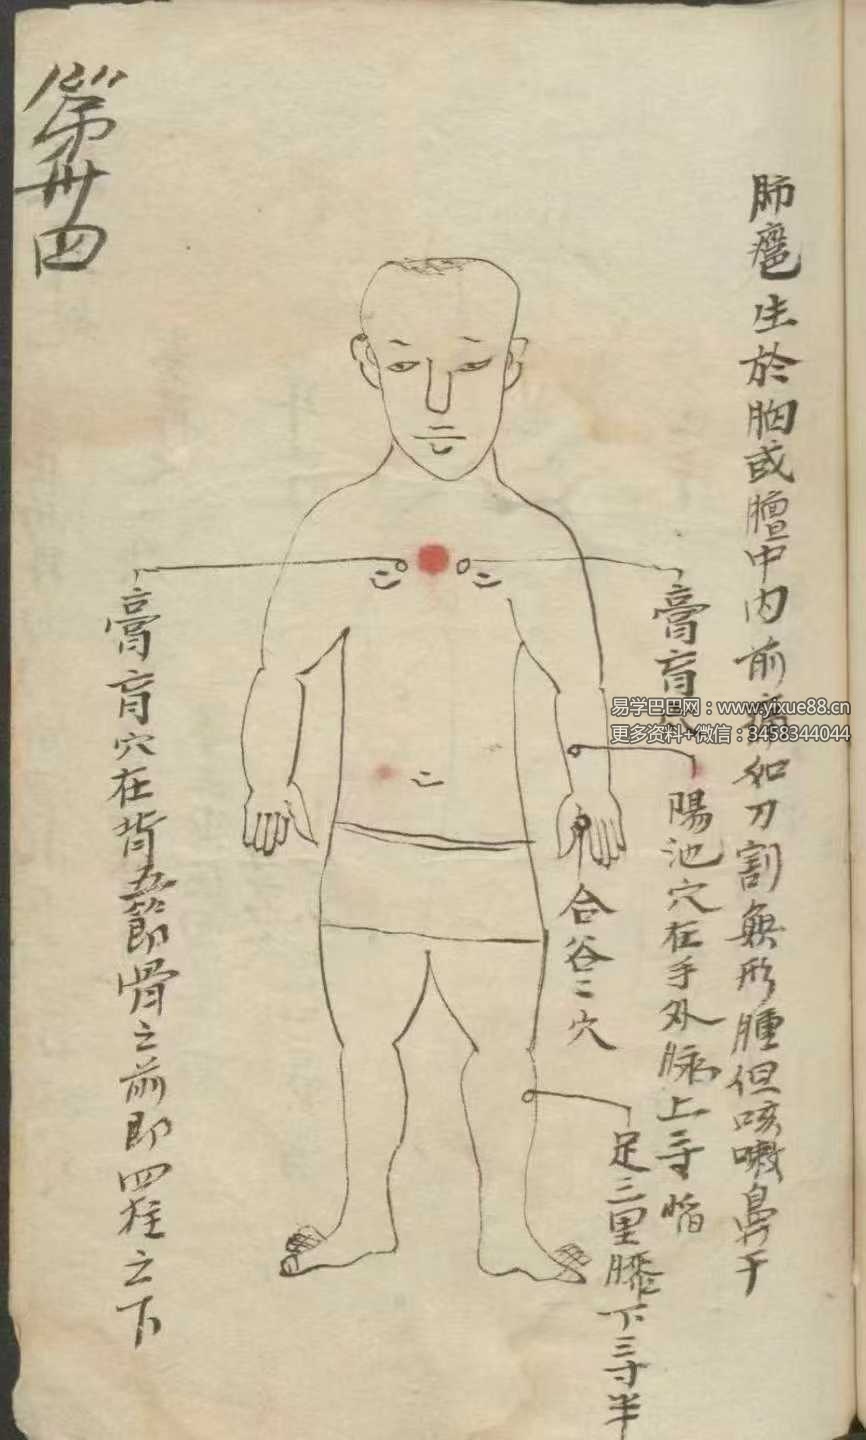 肺癰生於胸或膻中內前痛如刀割無形腫但咳嗽鼻干
膏肓穴
陽池穴在手外脉上三寸陷
合谷二穴
足三里膝下三寸半
膏肓穴在背五節骨之前即四柱之下
第卅四
易学巴巴网:www.yixue88.cn
更多资料+微信:3458344044